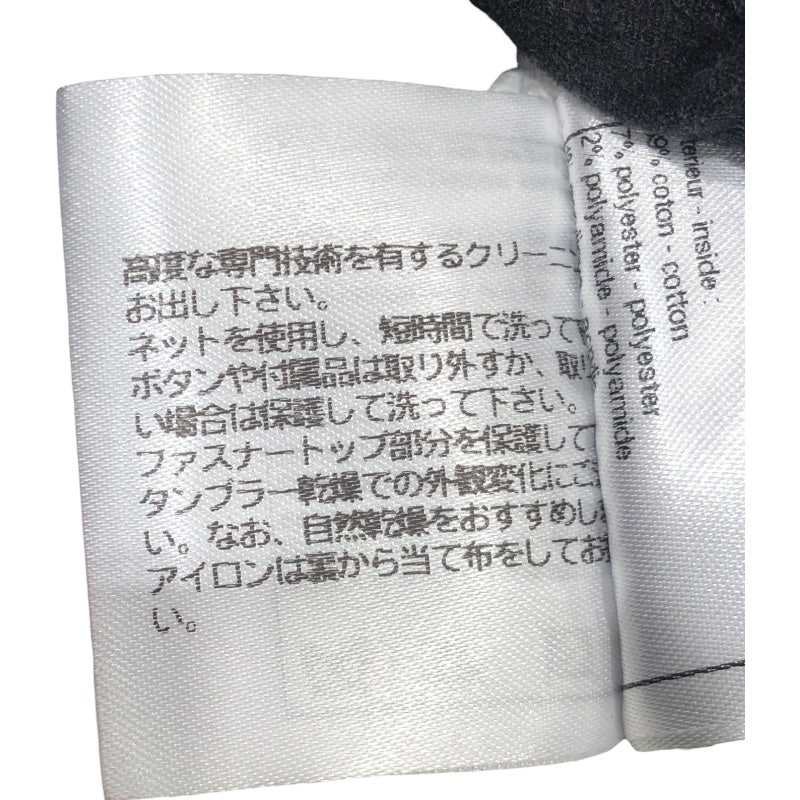 高度な専門技術を有するクリーニン
お出し下さい。
ネットを使用し、短時間で洗って
ボタンや付属品は取り外すか、取り
い場合は保護して洗って下さい。
ファスナートップ部分を保護して
タンブラー乾燥での外観変化にご
い。なお、自然乾燥をおすすめし
アイロンは裏から当て布をしてお
い。
terieur - inside :
9% coton - cotton
7% polyester - polyester
2% polyamide - polyamide